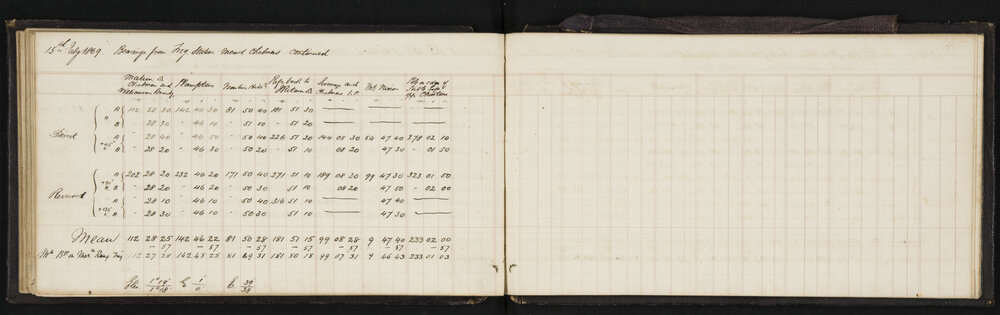 15th July 1869 Bearings from Trig Station Mount Chalmers continued
Plampton Martin Hill Mt Nixon
A 112 28 30 142 46 30 81 50 40 181 51 30
B " 28 30 - 46 10 - 51 10 - 51 20
Direct A - 28 40 - 46 50 - 50 40 226 51 20 144 08 30 54 47 40 278 02 10
+45° B - 28 20 - 46 30 - 50 20 - 51 10 08 20 47 30 - 01 50
A 202 28 20 232 46 20 171 50 40 271 51 10 189 08 30 99 47 30 323 01 50
+90° B - 28 20 - 46 20 - 50 30 51 10 08 20 47 50 - 02 00
Reversed A - 28 10 - 46 10 - 50 40 316 51 10 47 40
+135° B - 28 30 - 46 10 - 50 30 51 10 47 30
Mean 112 28 25 142 46 22 81 50 28 181 51 15 99 08 28 9 47 40 233 02 00
- 57 - 57 - 57 - 57 - 57 - 57 - 57
112 27 28 142 45 25 81 49 31 181 50 18 99 07 31 9 46 43 233 01 03
Elev. 1° 19' E 1 E. 39
1° 18' 0 38